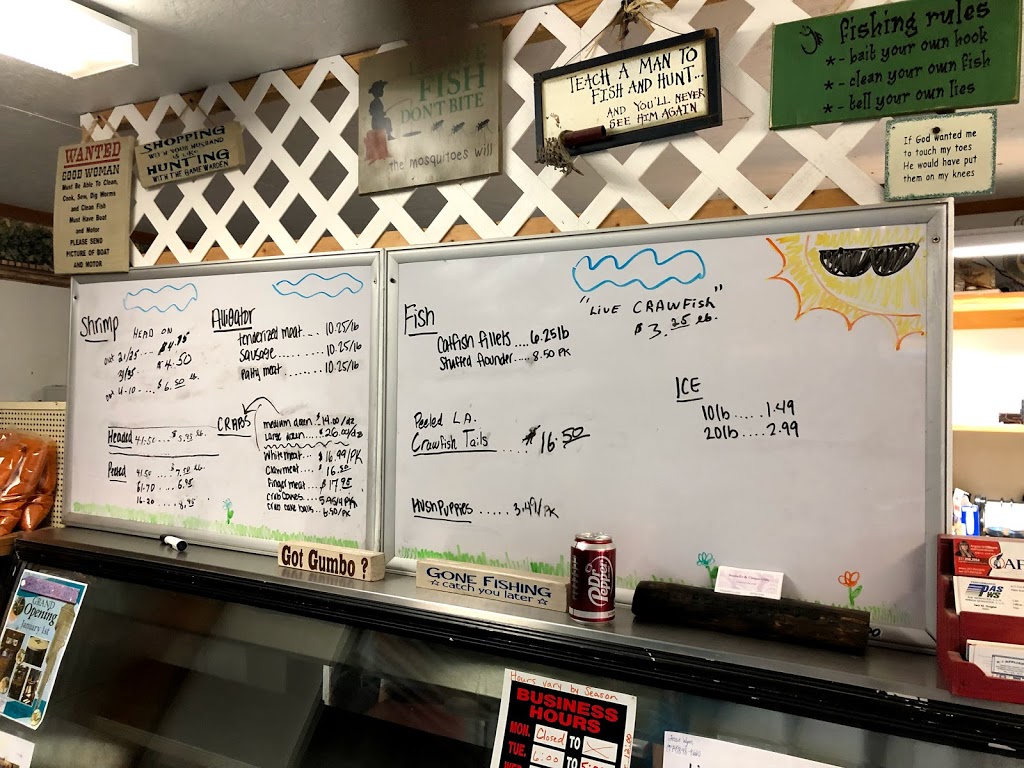 WANTED
GOOD WOMAN
Must Be Able To Clean,
Cook, Sew, Dig Worms
and Clean Fish
Must Have Boat
and Motor
PLEASE SEND
PICTURE OF BOAT
AND MOTOR
SHOPPING
WITH YOUR HUSBAND
IS LIKE
HUNTING
WITH THE GAME WARDEN
FISH
DON'T BITE
the mosquitoes will
TEACH A MAN TO
FISH AND HUNT...
AND YOU'LL NEVER
SEE HIM AGAIN
fishing rules
*- bait your own hook
*- clean your own fish
*- tell your own lies
If God wanted me
to touch my toes
He would have put
them on my knees
Shrimp
HEAD ON
21/25.... $4.75
31/35... $4.50
4-10.... $6.50 lb.
Headed 41-50... $5.95 lb.
Peeled 41-50 ... $7.50 lb.
61-70 ... 6.95
16-20 ... 8.95
Alligator
tenderized meat.... 10.25/lb
Sausage......... 10.25/lb
patty meat........ 10.25/lb
CRABS
medium dozen $14.00/dz
Large dozen $26.00/dz
White meat... $16.99/PK
Claw meat... $16.50
Finger meat... $17.95
Fish
Catfish fillets....6.25lb
Stuffed flounder.... 8.50 PK
"LIVE CRAWFISH"
$3.25 lb.
Peeled LA.
Crawfish Tails $16.50
HUSHPUPPIES ..... 3.49/PK
ICE
10lb.....1.49
20lb....2.99
Got Gumbo?
GONE FISHING
catch you later
Dr Pepper
GRAND
Opening
January 1st
Hours vary by Season
BUSINESS
HOURS
MON. Closed TO
TUE. TO
PAS
WS